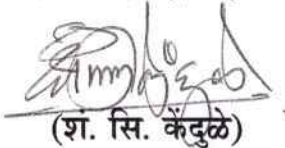 (शं. सि. केंदुळे)